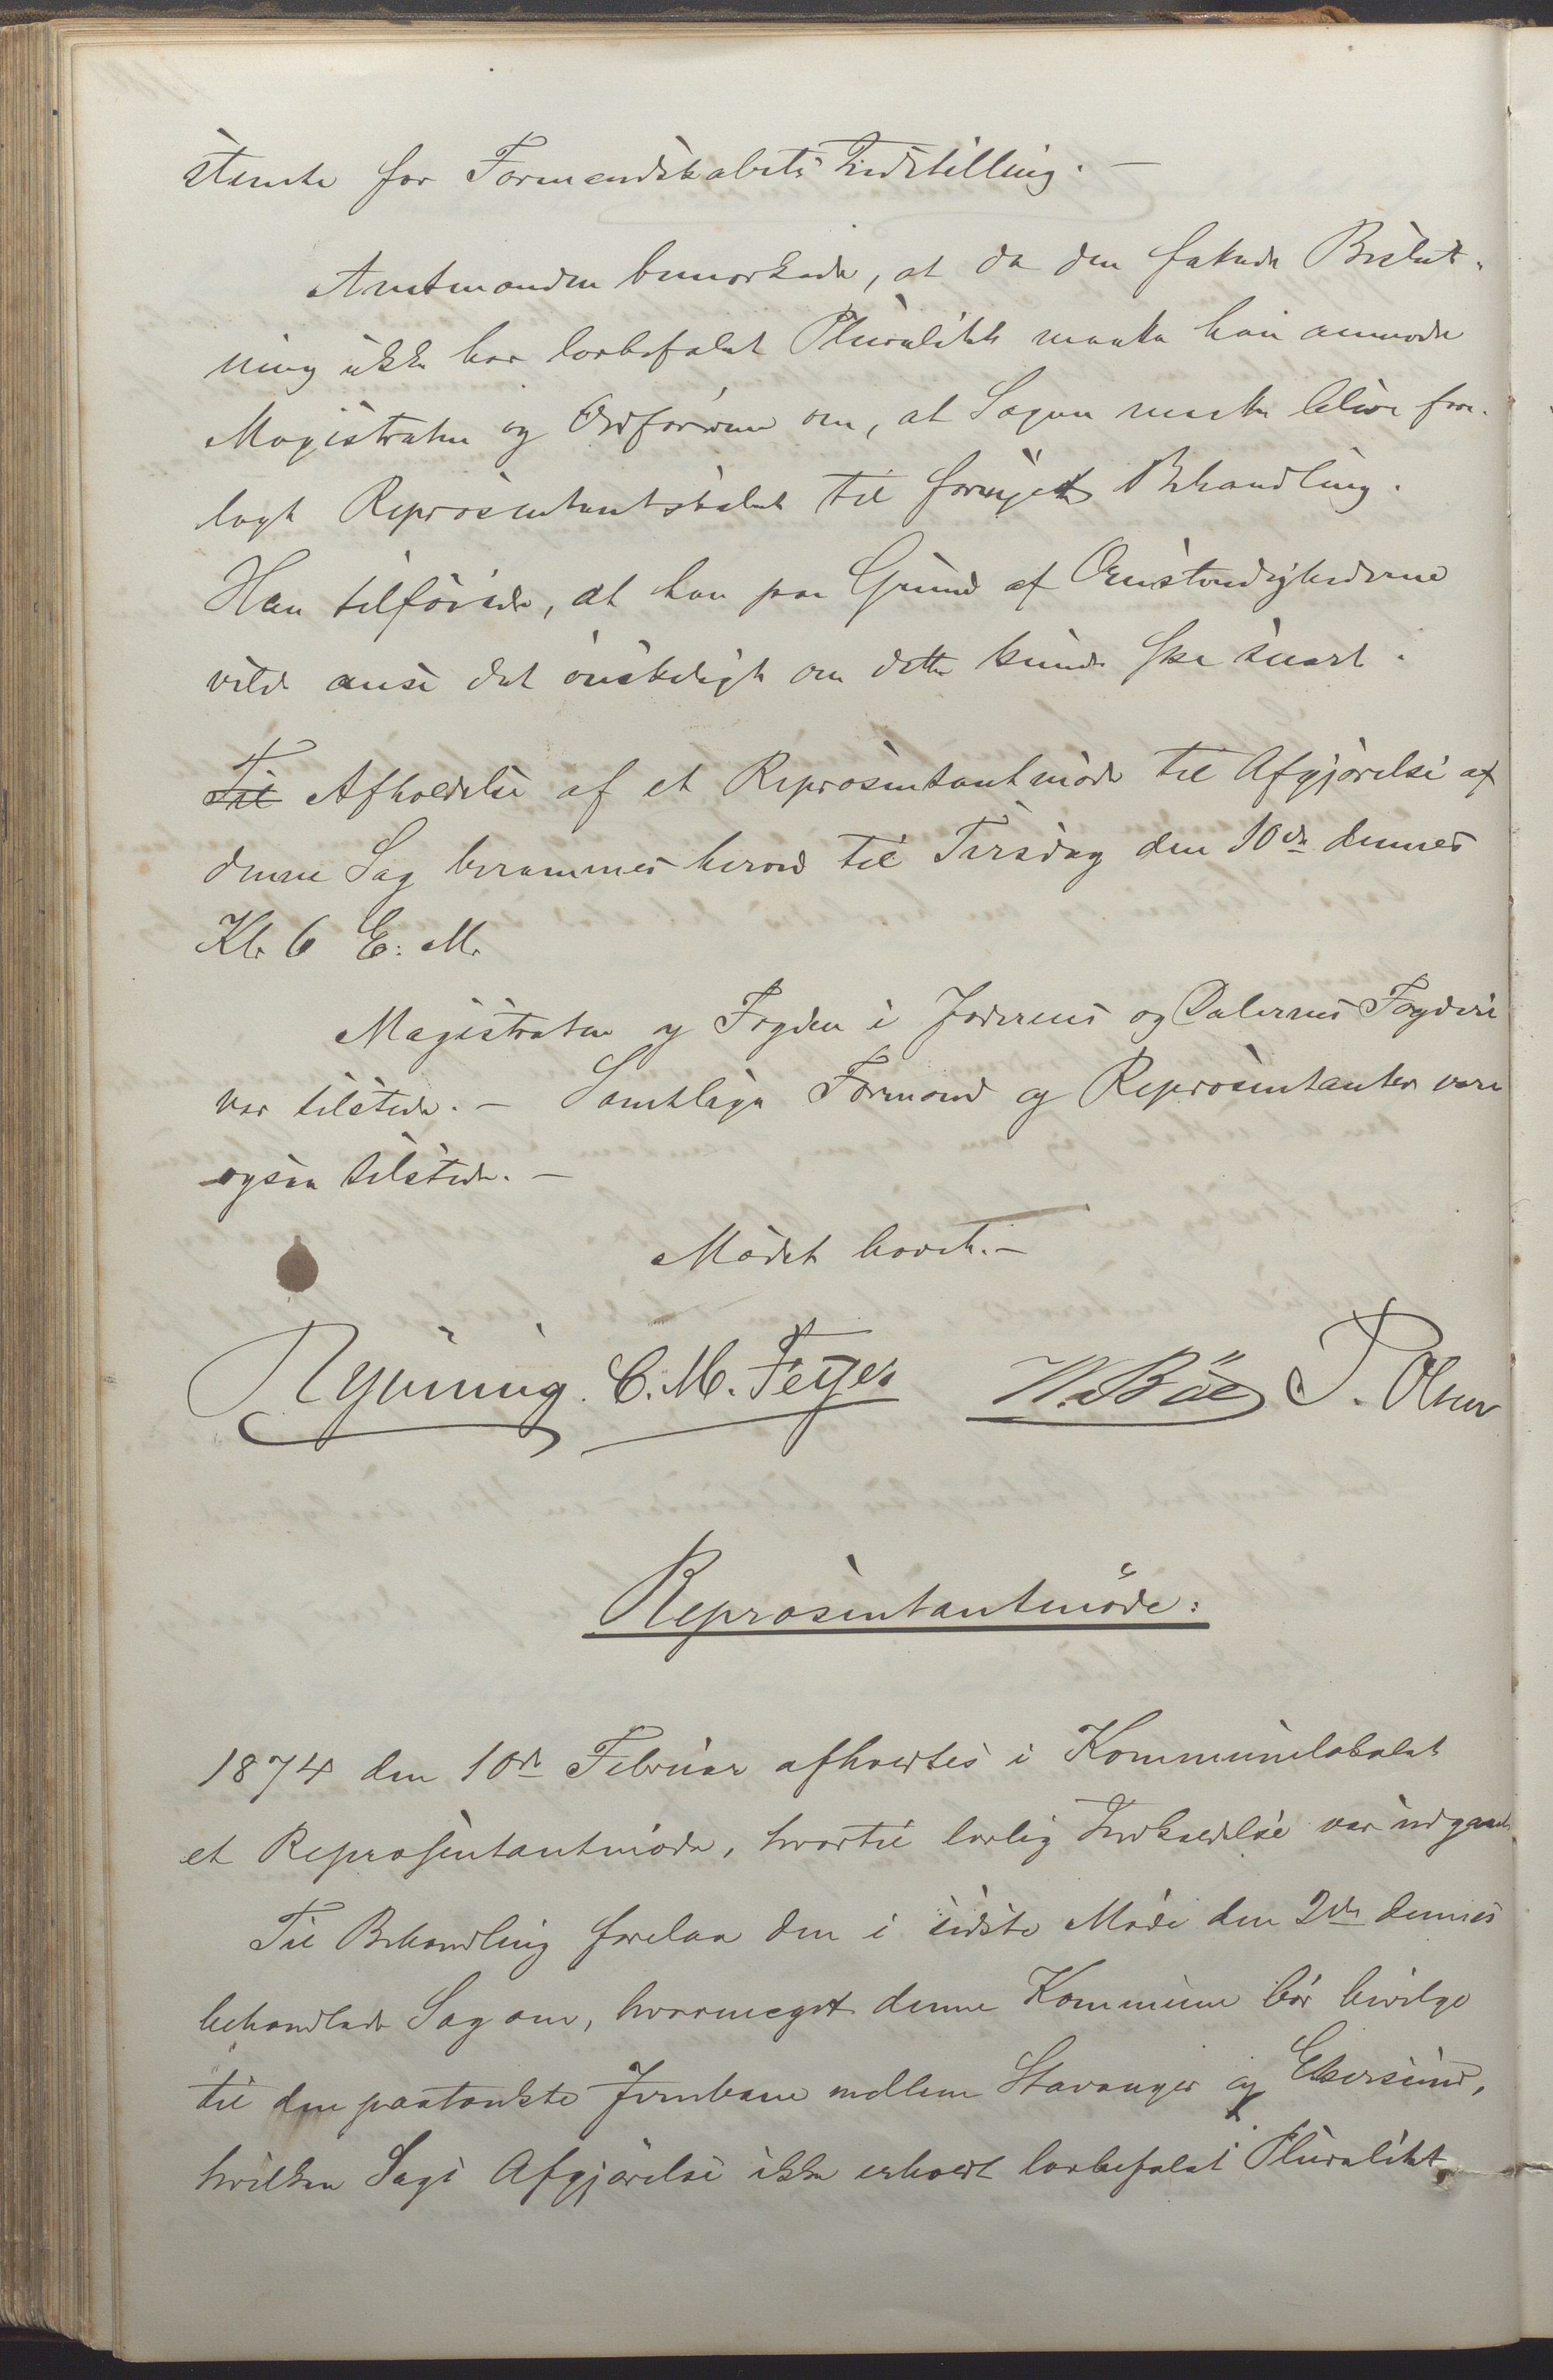 stemte for Formandskabets Indstilling. —
Amtmanden bemærkede, at da den fattede Beslut-
ning ikke har lovbefalet Pluralitet maatte han anmode
Magistraten og Ordføreren om, at Sagen maatte blive fore-
lagt Repræsentantskabet til fornyet Behandling.
Han tilføiede, at han paa Grund af Omstændighederne
vilde anse det ønskeligt om dette kunde ske snart.
Til Afholdelse af et Repræsentantmøde til Afgjørelse af
denne Sag berammes herved til Tirsdag den 10de dennes
Kl. 6 E. M.
Magistraten og Fogden i Jæderens og Dalernes Fogderi
var tilstede. — Samtlige Formænd og Repræsentanter vare
ogsaa tilstede. —
Mødet hævet. —
Rynning. C. M. Feyer W. Bøe P. Olsen
Repræsentantmøde:
1874 den 10de Februar afholdtes i Kommunelokalet
et Repræsentantmøde, hvortil lovlig Indkaldelse var udgaaet.
Til Behandling forelaa den i sidste Møde den 2den dennes
behandlede Sag om, hvormeget denne Kommune bør bevilge
til den paatænkte Jernbane mellem Stavanger og Ekersund,
hvilken Sags Afgjørelse ikke erholdt lovbefalet Pluralitet,